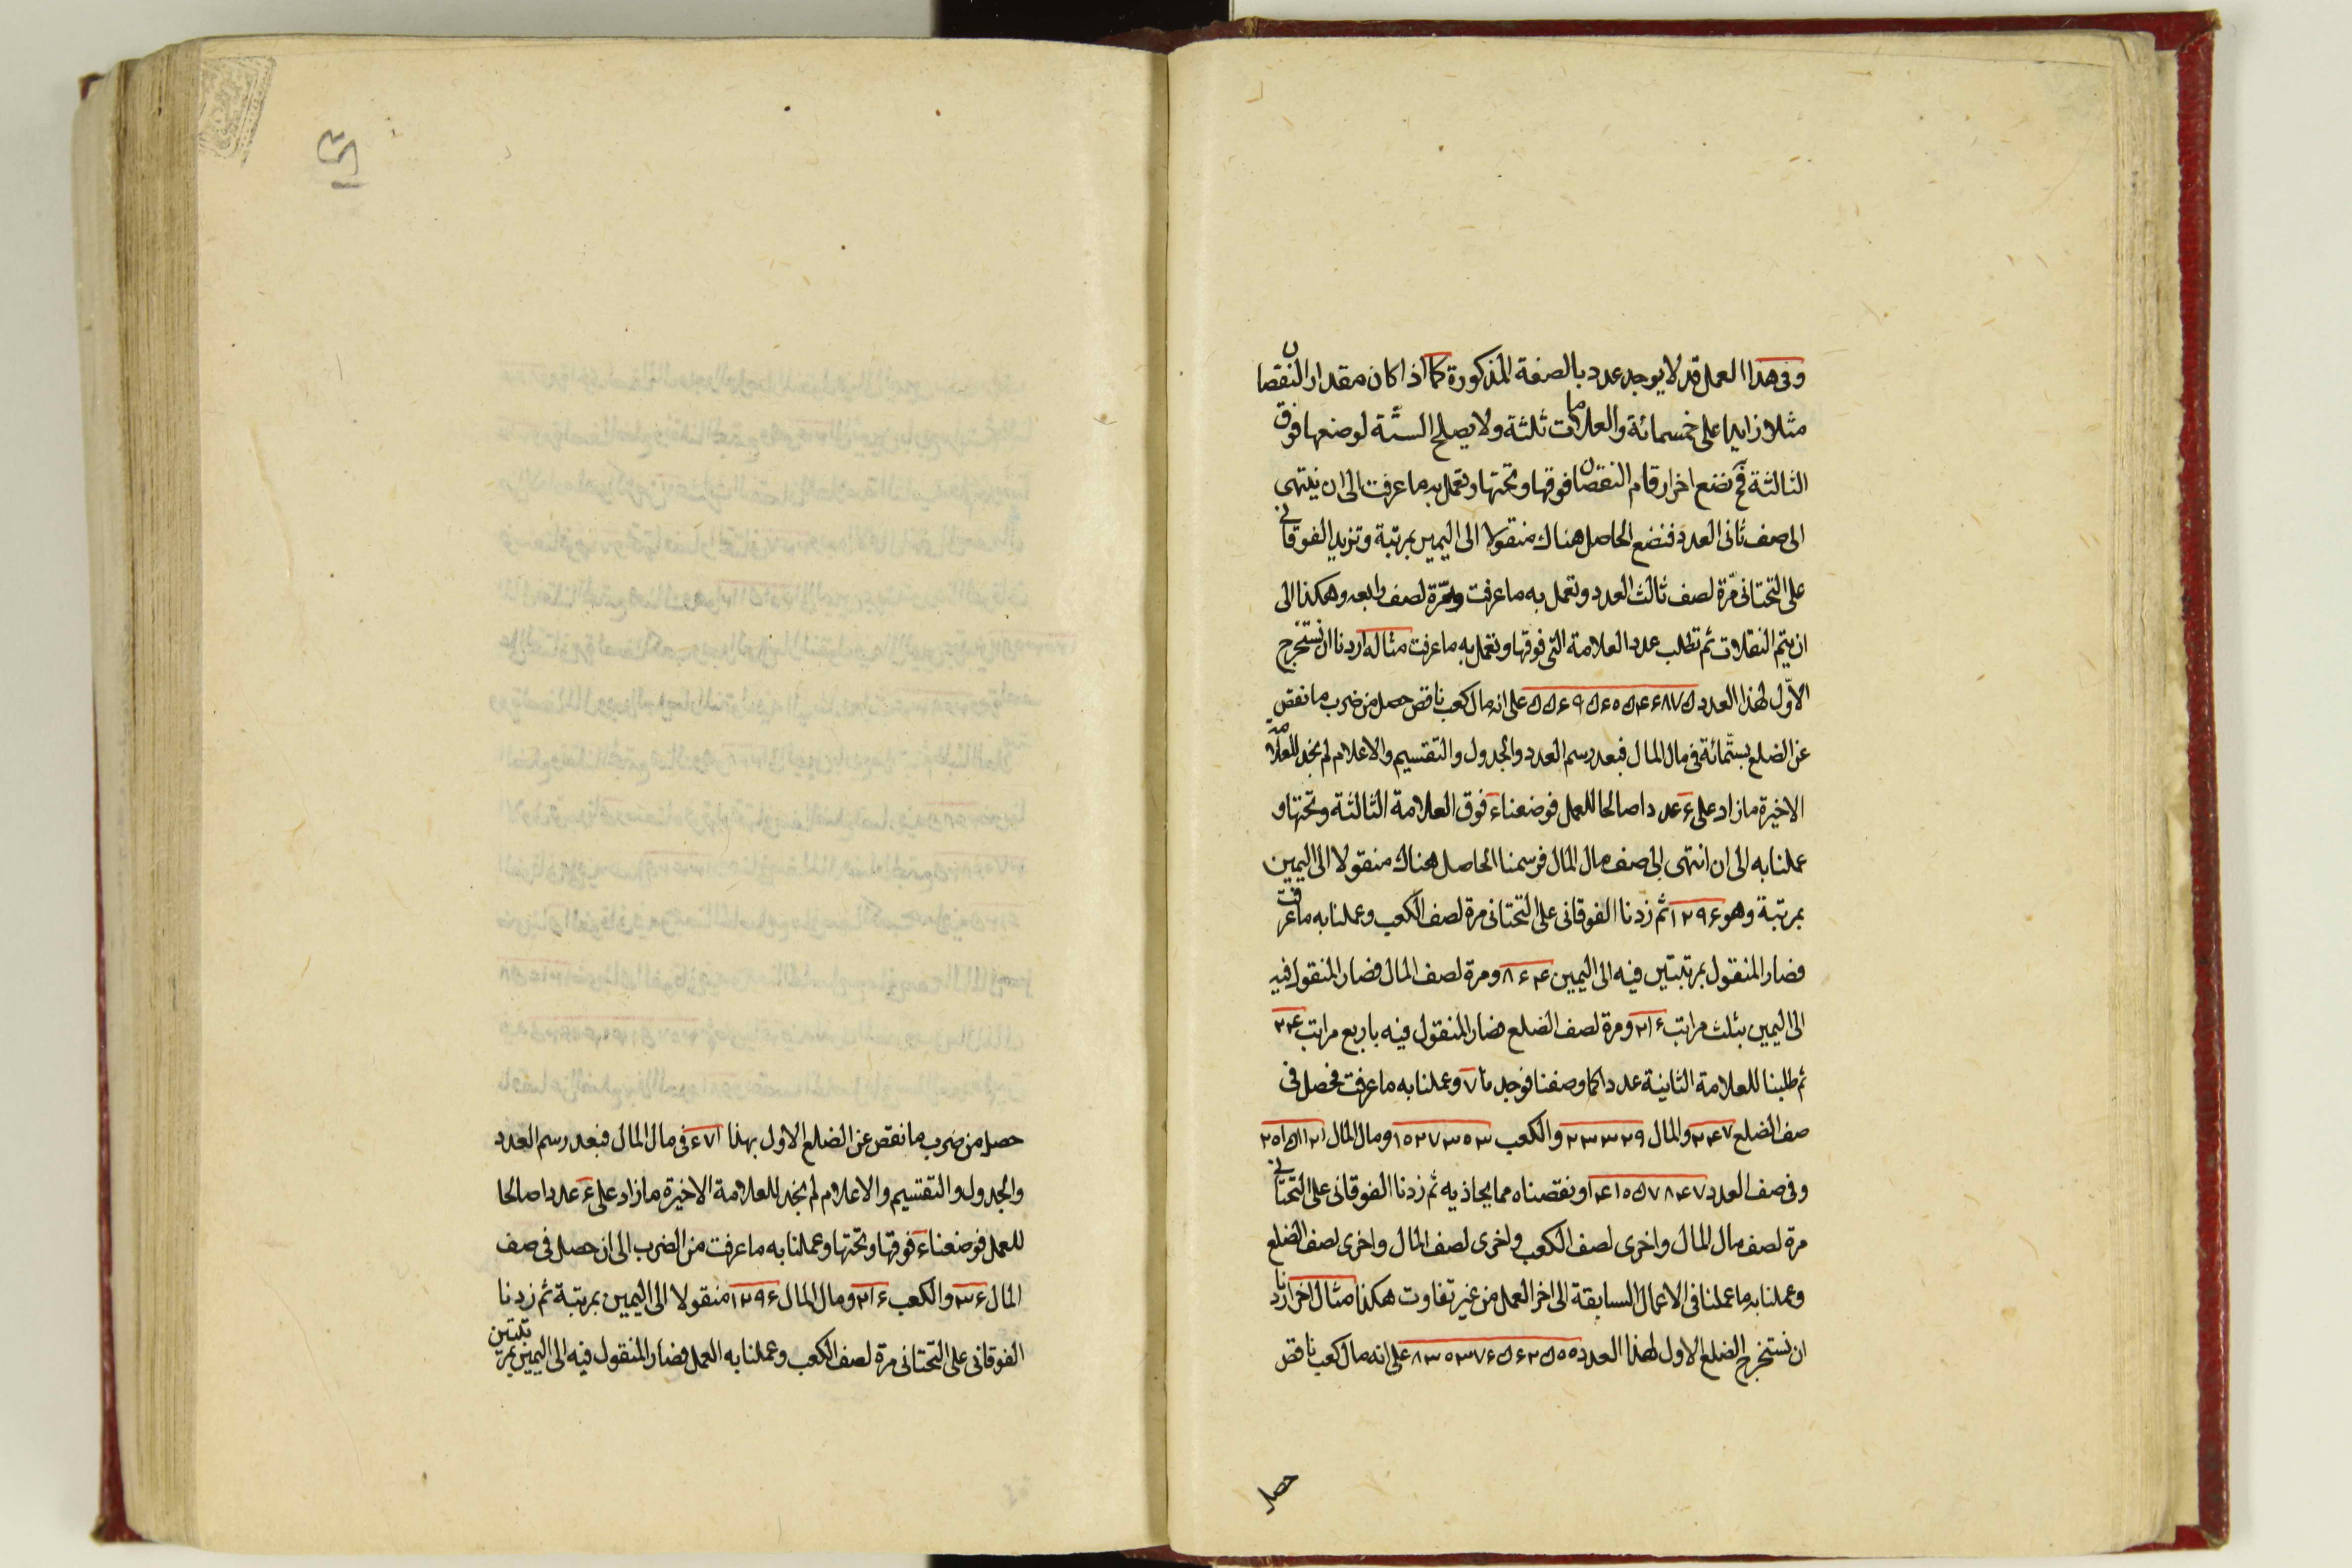 وفى هذا العمل قد لا يوجد عدد بالصفة المذكورة كما اذا كان مقدار النقصان
مثلا زايدا على خمسمائة والعلامات ثلثة ولا يصلح الستة لوضعها فوق
الثالثة فح نضع اخر ارقام النقصان فوقها وتحتها ونعمل به ما عرفت الى ان ينتهى
الى صف ثانى العدد فنضع الحاصل هناك منقولا الى اليمين بمرتبة ونزيد الفوقانى
على التحتانى مرة لصف ثالث العدد ونعمل به ما عرفت ومرة لصف رابعه وهكذا الى
ان يتم النقلات ثم نطلب عدد العلامة التى فوقها ونعمل به ما عرفت مثاله اردنا ان نستخرج
الاول لهذا العدد على انه مال كعب ناقص حصل من ضرب ما نقص
عن الضلع بستمائة فى مال المال فبعد رسم العدد والجدول والتقسيم والاعلام لم نجد للعلامة
الاخيرة ما زاد على ۶ عددا صالحا للعمل فوضعناء فوق العلامة الثالثة وتحتها و
عملنا به الى ان انتهى الى صف مال المال فرسمنا الحاصل هناك منقولا الى اليمين
بمرتبة وهو ۱۲۹۶ ثم زدنا الفوقانى على التحتانى مرة لصف الكعب وعملنا به ما عرفت
فصار المنقول بمرتبتين فيه الى اليمين ۸۶۴ ومرة لصف المال فصار المنقول فيه
الى اليمين بثلث مراتب ۲۱۶ ومرة لصف الضلع فصار المنقول فيه باربع مراتب ۲۴
ثم طلبنا للعلامة الثانية عددا كما وصفنا فوجدنا ۷ وعملنا به ما عرفت فحصل فى
صف الضلع ۲۴۷ والمال ۲۳۳۲۹ والكعب ۱۰۲۷۳۰۳ ومال المال
وفى صف العدد ونقصناه مما يحاذيه ثم زدنا الفوقانى على التحتانى
مرة لصف مال المال واخرى لصف الكعب واخرى لصف المال واخرى لصف الضلع
وعملنا به ما عملنا فى الاعمال السابقة الى اخر العمل من غير تفاوت هكذا مثال اخر اردنا
ان نستخرج الضلع الاول لهذا العدد على انه مال كعب ناقص
حصل
حصل من ضرب ما نقص عن الضلع الاول بهذا ۶۷۱ فى مال المال فبعد رسم العدد
والجدول والتقسيم والاعلام لم نجد للعلامة الاخيرة ما زاد على ۶ عددا صالحا
للعمل فوضعناء فوقها وتحتها وعملنا به ما عرفت من الضرب الى ان حصل فى صف
المال ۳۶ والكعب ۲۱۶ ومال المال ۱۲۹۶ منقولا الى اليمين بمرتبة ثم زدنا
الفوقانى على التحتانى مرة لصف الكعب وعملنا به العمل فصار المنقول فيه الى اليمين بمرتبتين